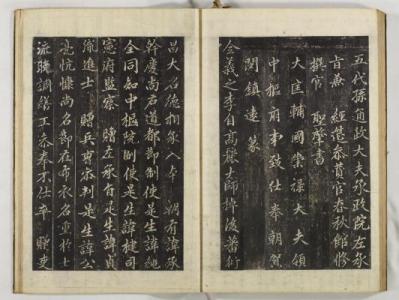 五代孫通政大夫承政院左承
旨兼 經筵參賛官春秋館修
撰官 聖聲書
大匡輔國崇祿大夫領
中樞府事致仕奉朝賀
閔鎮遠篆
全義之李自高麗太師棹後蕃衍
昌大名德相望入本 朝有諱承
幹慶尚右道都節制使是生諱純
全同知中樞統制使是生諱楗司
憲府監察 贈左承旨是生諱貞
胤進士 贈兵曹參判是生諱公
亮忼慷尚名節在布衣名重於士
流晚調繕工參奉不仕卒 贈吏